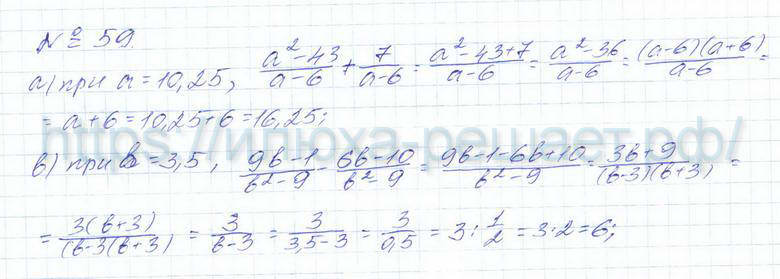 № 59.
а) при a = 10,25, (a² - 43)/(a - 6) + 7/(a - 6) = (a² - 43 + 7)/(a - 6) = (a² - 36)/(a - 6) = ((a - 6)(a + 6))/(a - 6) =
= a + 6 = 10,25 + 6 = 16,25;
https://илюха-решает.рф/
в) при b = 3,5, (9b - 1)/(b² - 9) - (6b - 10)/(b² - 9) = (9b - 1 - 6b + 10)/(b² - 9) = (3b + 9)/((b - 3)(b + 3)) =
= (3(b + 3))/((b - 3(b + 3)) = 3/(b - 3) = 3/(3,5 - 3) = 3/0,5 = 3 : 1/2 = 3 · 2 = 6;